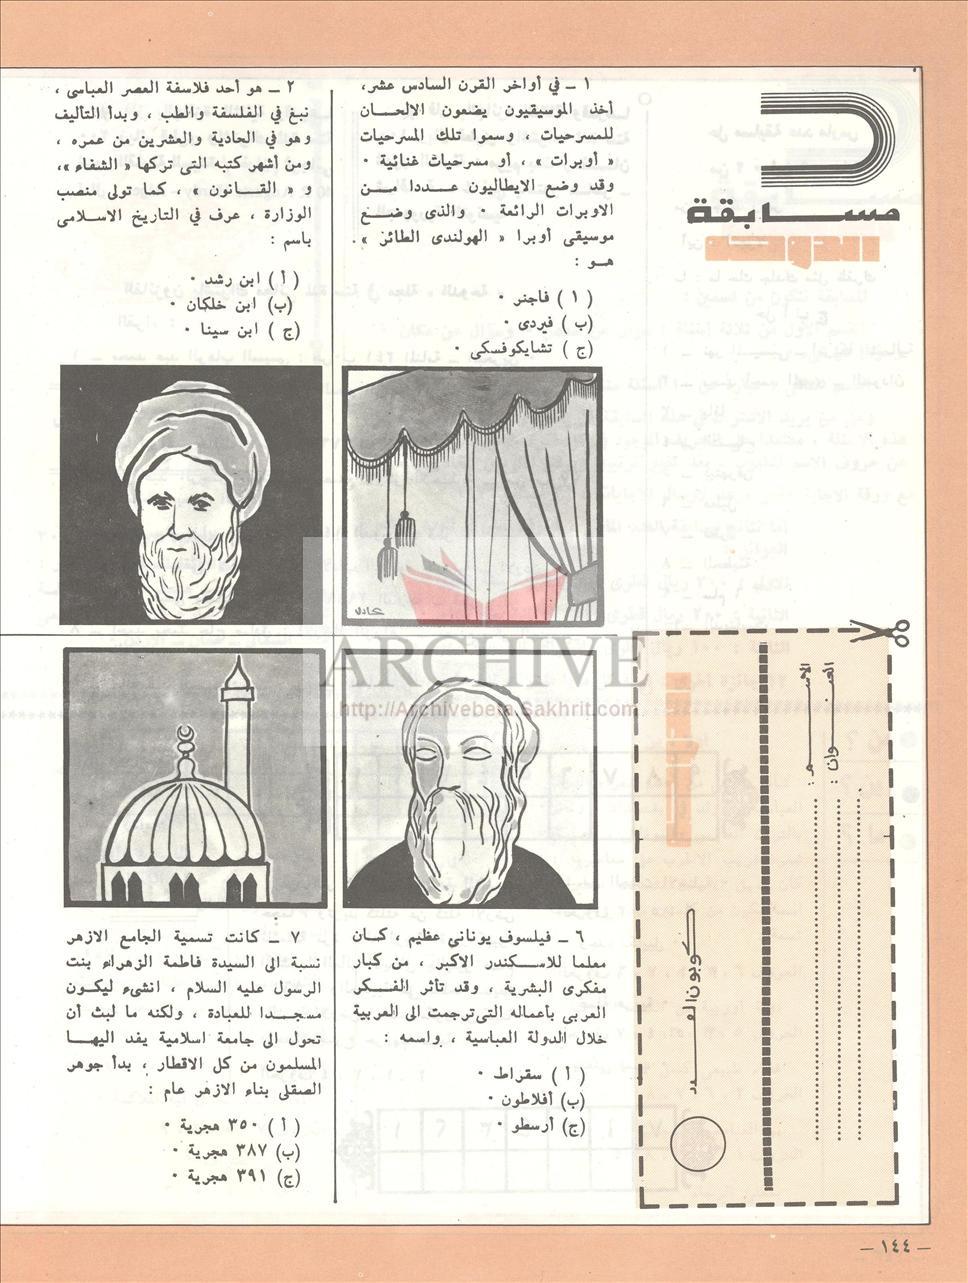 مسابقة
١ ــ في أواخر القرن السادس عشر،
أخذ الموسيقيون يضعون الالحان
للمسرحيات ، وسموا تلك المسرحيات
« أوبرات » ، أو مسرحيات غنائية ٠
وقد وضع الايطاليون عددا من
الاوبرات الرائعة ٠ والذى وضع
موسيقى أوبرا « الهولندى الطائر » ٠
هو :
( ١ ) فاجنر ٠
(ب ) فيردى ٠
(ج ) تشايكوفسكى ٠
٢ ــ هو أحد فلاسفة العصر العباسى ،
نبغ في الفلسفة والطب ، وبدأ التأليف
وهو في الحادية والعشرين من عمره ،
ومن أشهر كتبه التى تركها « الشفاء »،
و « القانون » ، كما تولى منصب
الوزارة ، عرف في التاريخ الاسلامى
باسم :
( أ ) ابن رشد ٠
(ب) ابن خلكان ٠
(ج ) ابن سينا ٠
عادل
ARCHIVE
http://Archivebeta.Sakhrit.com
٦ ــ فيلسوف يونانى عظيم ، كان
معلما للاسكندر الاكبر ، من كبار
مفكرى البشرية ، وقد تأثر الفكر
العربى بأعماله التى ترجمت الى العربية
خلال الدولة العباسية ، واسمه :
( أ ) سقراط ٠
(ب) أفلاطون ٠
(ج) أرسطو ٠
٧ ــ كانت تسمية الجامع الازهر
نسبة الى السيدة فاطمة الزهراء بنت
الرسول عليه السلام ، انشىء ليكون
مسجدا للعبادة ، ولكنه ما لبث أن
تحول الى جامعة اسلامية يفد اليها
المسلمون من كل الاقطار ، بدأ جوهر
الصقلى بناء الازهر عام :
( أ ) ٣٥٠ هجرية ٠
(ب) ٣٨٧ هجرية ٠
(ج) ٣٩١ هجرية ٠
الاسم :
العنوان :
كوبون العدد
ــ ١٤٤ ــ